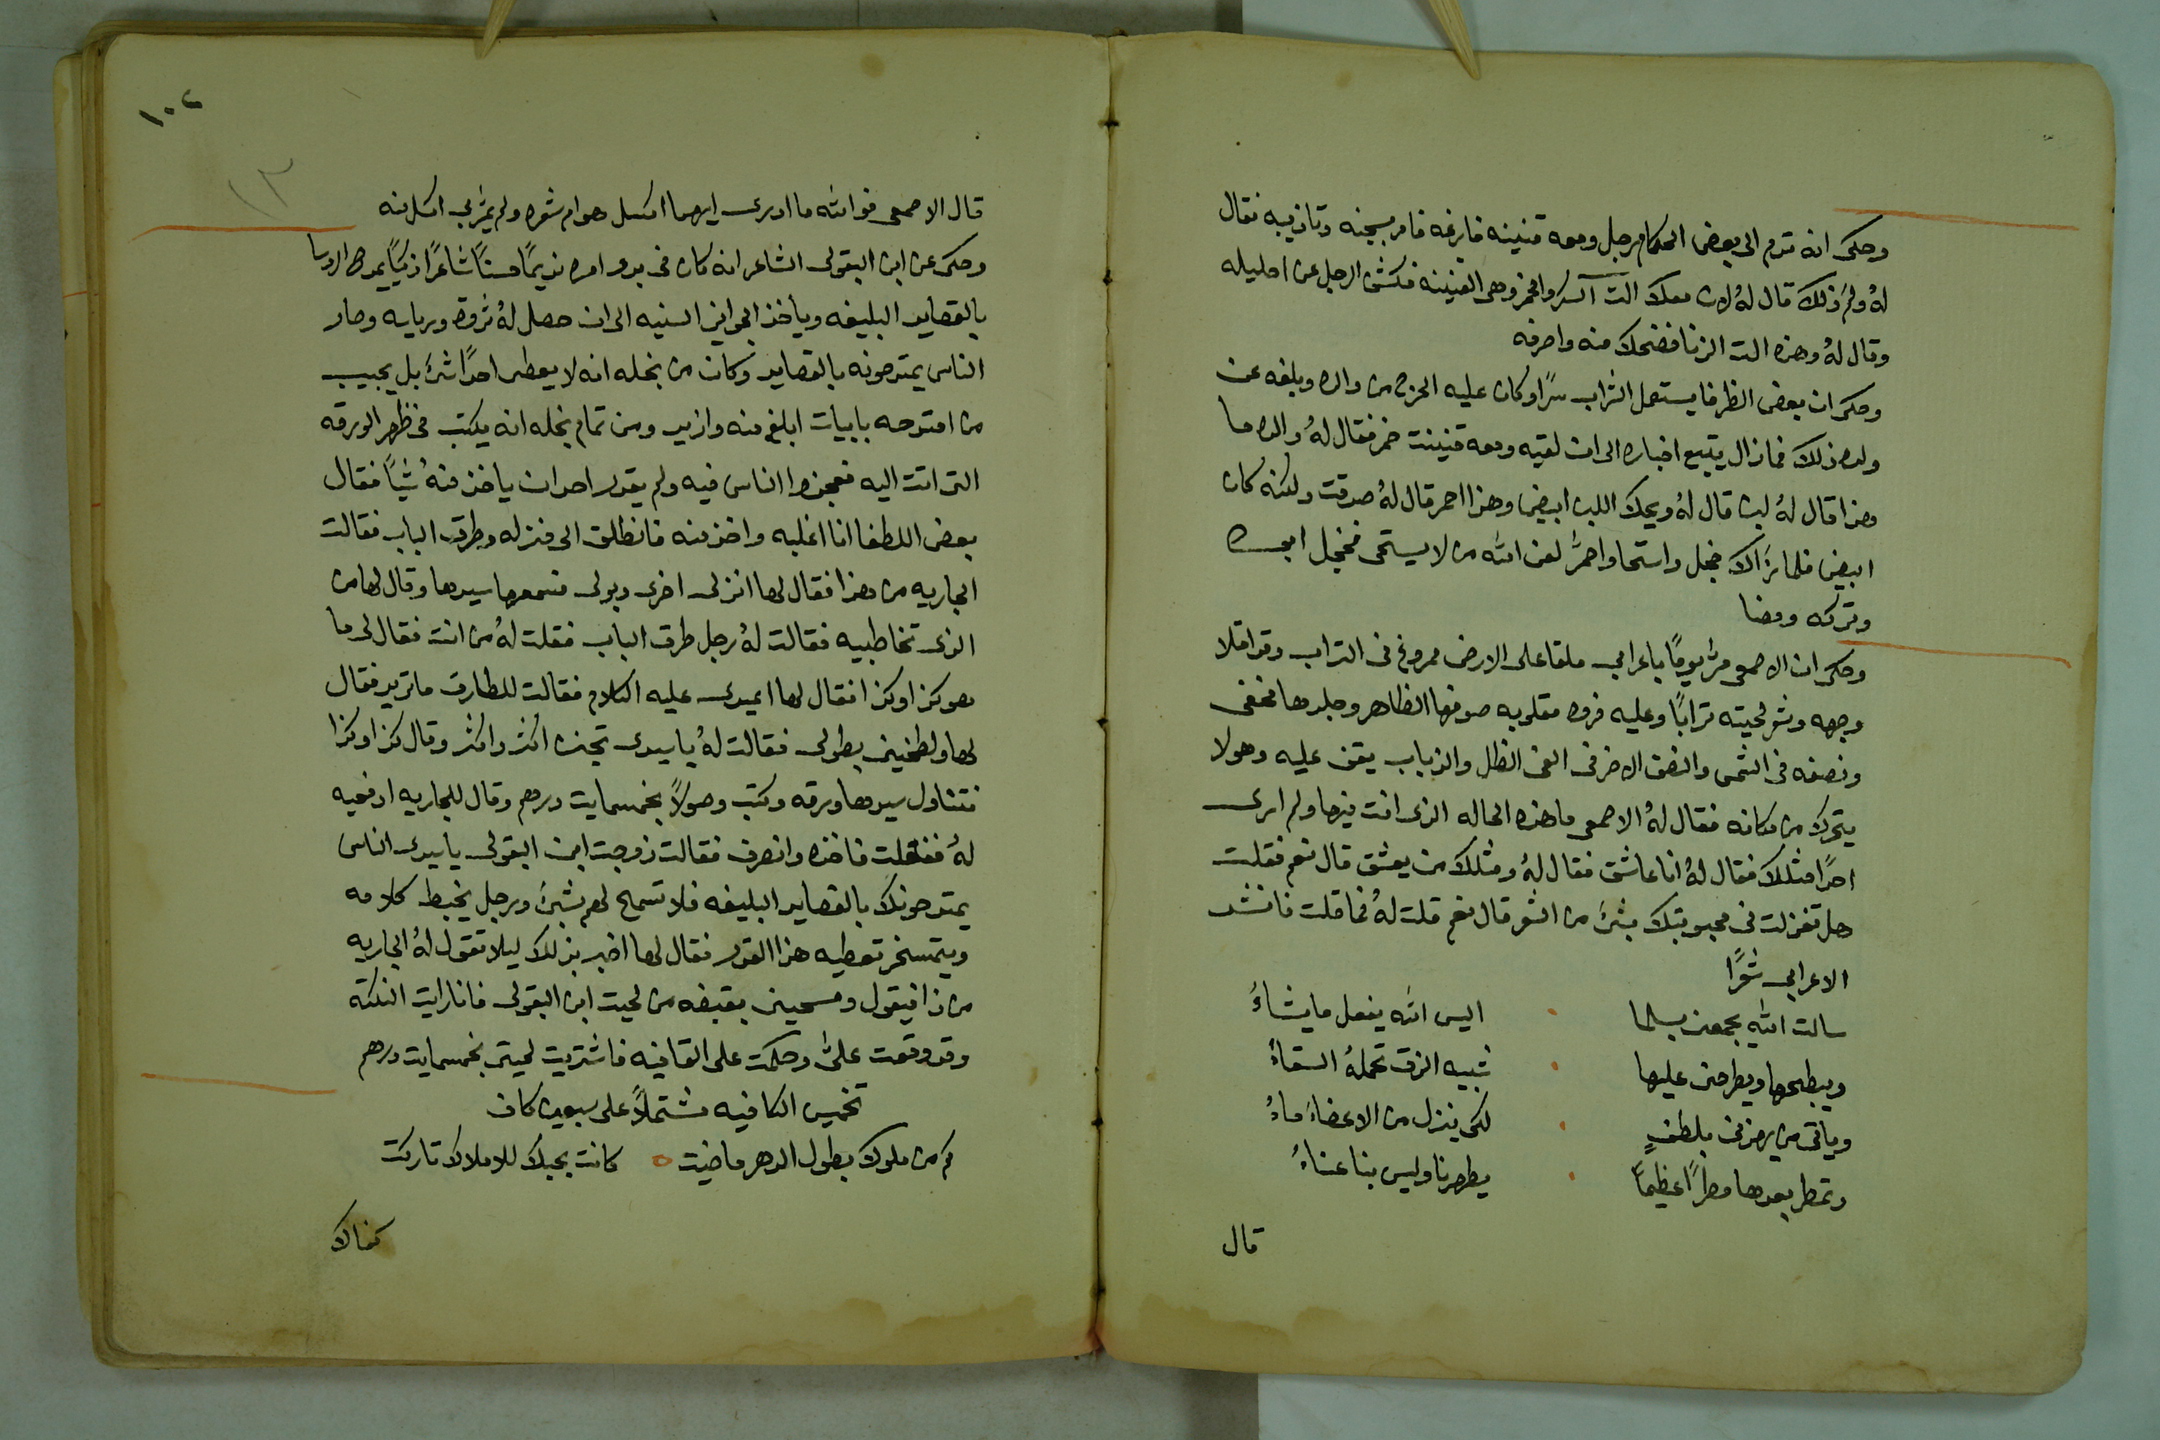 وحكى انه قدم الى بعض الحكام رجل ومعه قنينه فارغه فامر بسجنه وتاذيبه فقال
لهُ ولمَ ذلك قال لهُ لان معك الت السكر والخمر وهى القنينه فكشف الرجل عن احليله
وقال لهُ وهذه الت الزنا فضحك منه واصرفه
وحكى ان بعض الظرفا يستعمل الشراب سرًا وكان عليه الحرج من والده وبلغه عن
ولده ذلك فما زال يتبع اخباره الى ان لقيه ومعه قنينت خمر فقال لهُ والده ما
هذا قال لهُ لبن قال لهُ ويحك اللبن ابيض وهذا احمر قال لهُ صدقت ولكنه كان
ابيض فلما رَآك خجل واستحا واحمرَّ لعن الله من لا يستحى فخجل ابوه
وتركه ومضا
وحكى ان الاصمعى مرَّ يومًا باعرابي ملقا على الارض ممروغ فى التراب وقد املا
وجهه وشعر لحيته ترابًا وعليه فروه مقلوبه صوفها الظاهر وجلدها مخفى
ونصفه فى الشمس والنصف الاخر فى الفى الظل والذباب يقف عليه وهو لا
يتحرك من مكانه فقال لهُ الاصمعى ما هذه الحاله الذى انت فيها ولم ارى
احدًا مثلك فقال لهُ انا عاشق فقال لهُ ومثلك من يعشق قال نعم فقلت
هل تغزلت فى محبوبتك بشئ من الشعر قال نعم قلت لهُ فما قلت فانشد
الاعرابي شعرًا
سالت الله يجمعنى بسلما • اليس الله يفعل ما يشاءُ
ويبطحها ويطرحنى عليها • شبيه الزق تحملهُ السقاءُ
وياتى من يحركنى بلطفٍ • لكى ينزل من الاعضاءَ ماءُ
وتمطر بعدها مطرًا عظيماً • يطهرنا وليس بنا عناءُ
قال
١٠٢
١٣
قال الاصمعى فوالله ما ادرى ايهما اكسل هو ام شعره ولم يمرَّ بي اكسل منه
وحكى عن ابن البقولى الشاعر انه كان فى بدو امره نديمًا حسنًا شاعرًا ذكيًا يمدح الروسا
بالقصايد البليغه وياخذ الجوايز السنيه الى ان حصل لهُ ثروه وربايه وصار
الناس يمتدحونه بالقصايد وكان من بخله انه لا يعطى احدًا شئ بل يجيب
من امتدحه بابيات ابلغ منه وازيد ومن تمام بخله انه يكتب فى ظهر الورقه
التى اتت اليه فعجزوا الناس فيه ولم يقدر احد ان ياخذ منهُ شيًا فقال
بعض اللطفا انا اغلبه واخذ منه فانطلق الى منزله وطرق الباب فقالت
الجاريه من هذا فقال لها انزلى اخرى وبولى فسمعها سيدها وقال لها من
الذى تخاطبيه فقالت لهُ رجل طرق الباب فقلت لهُ من انت فقال لى ما
هو كذا وكذا فقال لها اعيدى عليه الكلام فقالت للطارق ما تريد فقال
لها ولطخينى بطولى فقالت لهُ يا سيدى تجننه اكثر واكثر وقال كذا وكذا
فتناول سيدها ورقه وكتب وصولاً بخمسمايت درهم وقال للجاريه ادفعيه
لهُ ففعلت فاخذه وانصرف فقالت زوجت ابن البقولى يا سيدى الناس
يمتدحونك بالقصايد البليغه فلا تسمح لهم بشئ ورجل يخبط كلامه
ويتمسخر تعطيه هذا القدر فقال لها اخبر بذلك ليلا تقول لهُ الجاريه
من ذا فيقول ومسحينى بقبضه من لحيت ابن البقولى فانا رايت النكته
وقد وقعت علىَّ وحكمت على القافيه فاشتريت لحيتى بخمسمايت درهم
تخميس الكافيه مشتملاً على سبعين كاف
كم من ملوك بطول الدهر ماضيت ° كانت بحبك للاملاك تاركت
كفاك